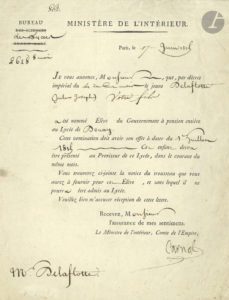 BUREAU
MINISTÈRE DE L'INTÉRIEUR.
Paris, le 17 Juin 1815
Je vous annonce, Monsieur que, par décret
impérial du le jeune Delaflotte
(Jules Joseph) Votre fils
a été nommé Élève du Gouvernement à pension entière
au Lycée de Douay
Cette nomination doit avoir son effet à dater du 1er Juillet
1815 Cet enfant devra
être présenté au Proviseur de ce Lycée, dans le courant du
même mois.
Vous trouverez ci-jointe la notice du trousseau que vous
aurez à fournir pour cet Élève, et sans lequel il ne
pourra être admis au Lycée.
Veuillez bien m'accuser réception de cette lettre.
Recevez, Monsieur
l'assurance de mes sentiments.
Le Ministre de l'intérieur, Comte de l'Empire,
Carnot
Mr Delaflotte